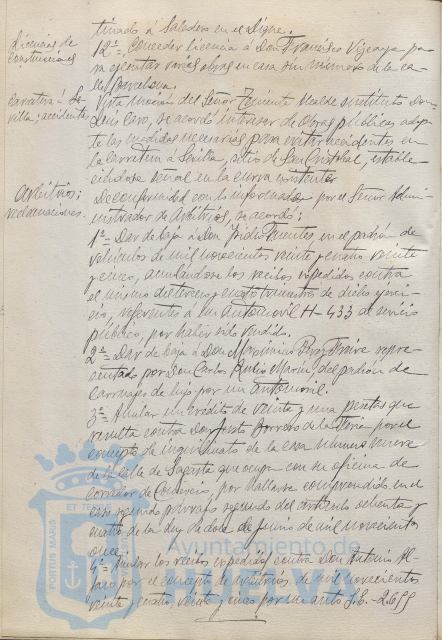 tinado á Saladero en el Dique.
Licencias de
construcciones
12ª- Conceder licencia á Don Francisco Vizcaya pa-
ra ejecutar varias obras en casa sin número de la ca-
lle Barcelona.
Carretera á Se-
villa; accidentes
Vista moción del Señor Teniente Alcalde sustituto Don
Luis Caro, se acordó interesar de Obras públicas adop-
te las medidas necesarias para evitar accidentes en
la carretera á Sevilla, sitio de San Cristóbal, estable-
ciéndose señal en la curva existente.
Arbitrios;
reclamaciones.
De conformidad con lo informado por el Señor Admi-
nistrador de Arbitrios, se acordó:
1ª- Dar de baja á Don Isidro Fuentes, en el padrón de
vehículos de mil novecientos veinte y cuatro veinte
y cinco, anulándose los recibos expedidos contra
el mismo del tercero y cuarto trimestres de dicho ejerci-
cio, referentes á un automóvil H-433 de servicio
público, por haber sido vendido.
2ª- Dar de baja á Don Maximino Pérez Freire repre-
sentado por Don Carlos Rubio Marín del padrón de
carruajes de lujo por un automóvil.
3ª- Anular un crédito de veinte y una pesetas que
resulta contra Don Justo Borrero de la Feria por el
concepto de inquilinato de la casa número nueve
de la calle de Sagasta que ocupa con su oficina de
corredor de Comercio, por hallarse comprendido en el
caso segundo párrafo segundo del artículo ochenta y
cuatro de la Ley de doce de Junio de mil novecientos
once.
4ª- Anular los recibos expedidos contra Don Antonio Al-
faro por el concepto de arbitrios de mil novecientos
veinte y cuatro, veinte y cinco por un auto S.E.-2.699
PORTUS MARIS ET TE
Ayuntamiento de
HUELVA